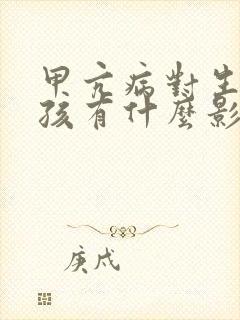 甲亢病對生
孩有什麼影
庚戌